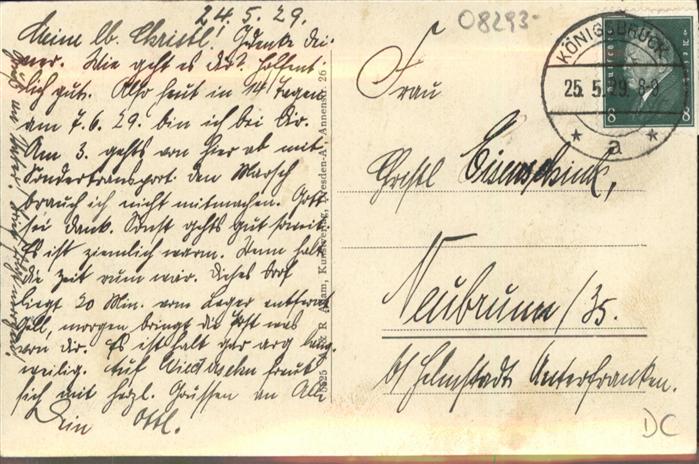 24.5.29.
Meine lb. Christl! Gedenke Dei-
ner. Wie geht es Dir? Hoffent-
lich gut. Also heut in 14 Tagen
am 7.6.29. bin ich bei Dir.
Am 3. gehts von hier ab mit
Sondertransport. den Marsch
brauch ich nicht mitmachen. Gott
sei dank. Sonst gehts gut somit.
Es ist ziemlich warm. Wenn halt
die Zeit rum wär. Dieses Dorf
liegt 20 Min. vom Lager entfernt
Gell, morgen bringt die Post was
von Dir. Es ist halt gar arg lang-
weilig. Auf freut
sich mit herzl. Grüssen an Alle
Dein Ottl.
R. Adam, Kunstverlag, Dresden-A., Annenstr. 26
08293-
KÖNIGSBRÜCK
25.5.29. 8-9
* a *
8 8
Frau
Eisenschink,
Neubrunn/35.
b/ Helmstadt Unterfranken.
DC